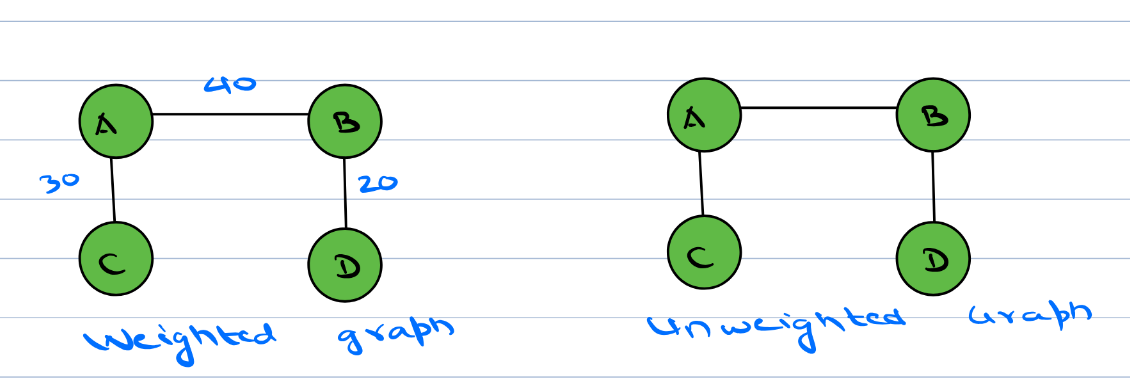 40
A B A B
30 20
C D C D
Weighted graph Unweighted Graph